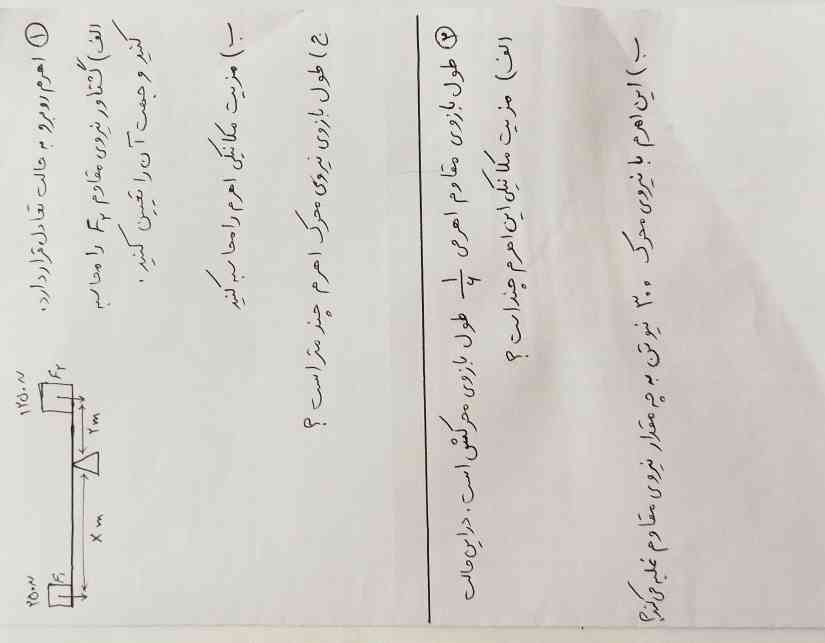 ① اهرم روبرو به حالت تعادل قرار دارد.
الف) گشتاور نیروی مقاوم F₂ را محاسبه
کنید و جهت آن را تعیین کنید.
ب) مزیت مکانیکی اهرم را محاسبه کنید
ج) طول بازوی نیروی محرک اهرم چند متر است ؟
۲۵۰N
F₁
۱۲۵۰N
F₂
X m
۲m
② طول بازوی مقاوم اهرمی ۱/۶ طول بازوی محرکش است. در این حالت
الف) مزیت مکانیکی این اهرم چند است ؟
ب) این اهرم با نیروی محرک ۳۰۰ نیوتن به چه مقدار نیروی مقاوم غلبه می‌کند؟